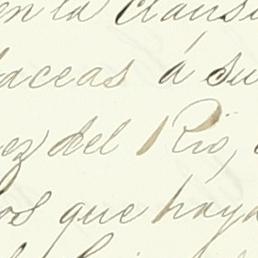 en la Clausu
baceas á su
ez del Rio,
os que haya